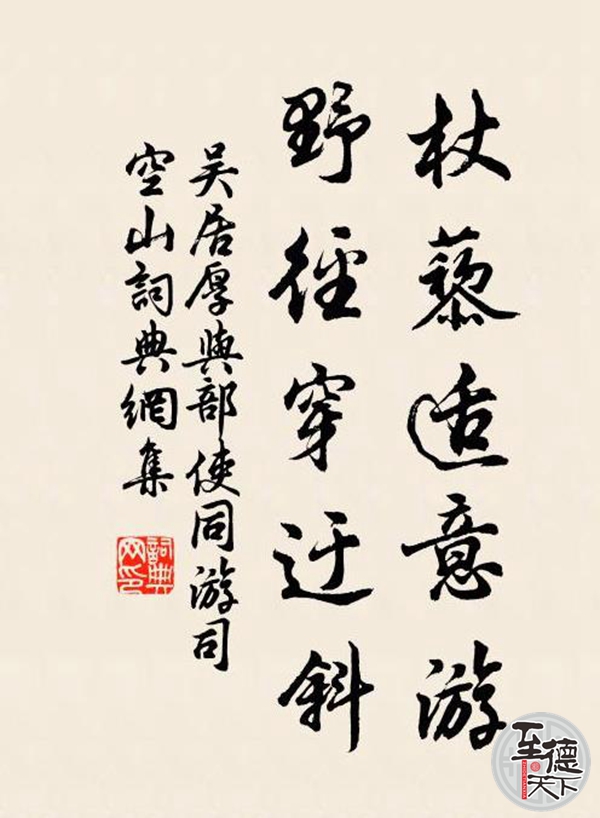 杖藜适意游
野徑穿迂斜
吴居厚與部使同游司
空山詞典網集
詞典网印
至德天下